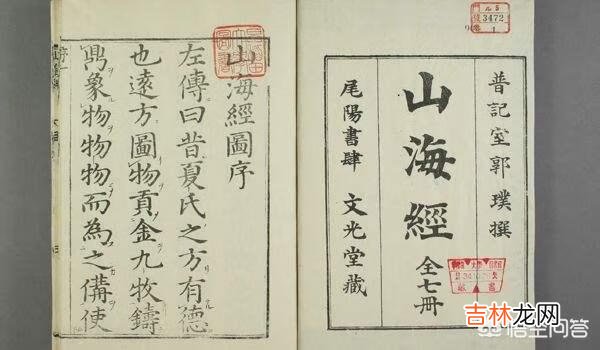 晋記室郭璞撰
山海經 全七冊
尾陽書肆 文光堂藏
3472
1
山海經圖序
左傳曰昔夏氏之方有德
也遠方圖物貢金九牧鑄
鼎象物物物而為之備使
序一
吉林龙网
悟空问答